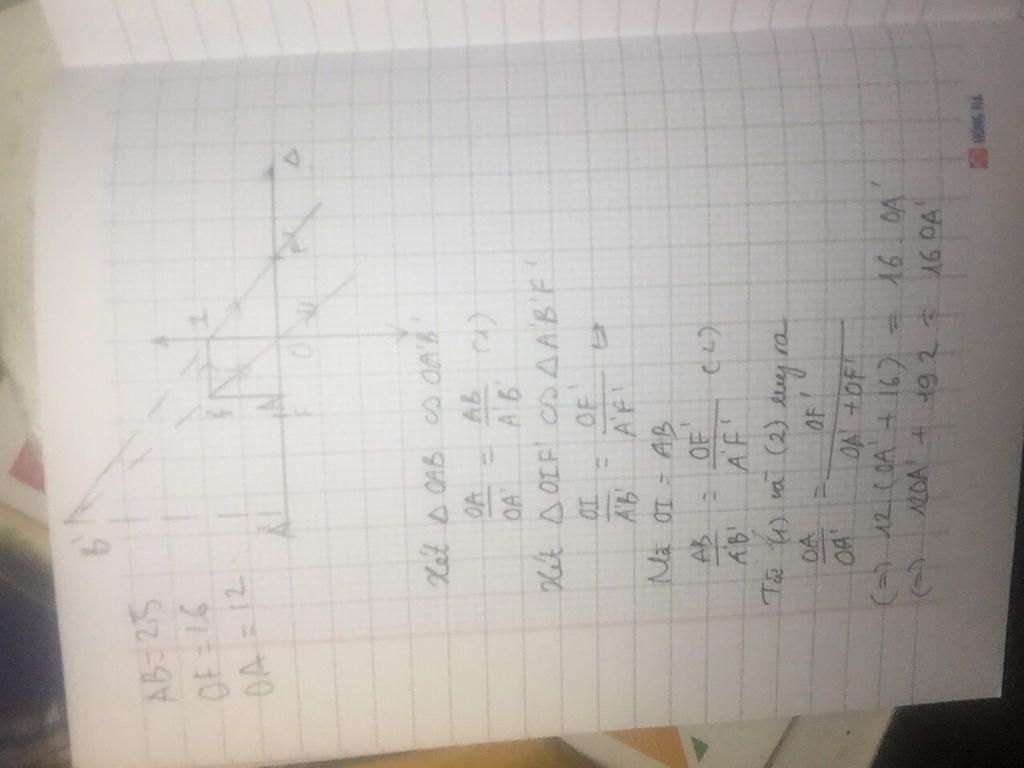 AB = 25
OF = 16
OA = 12
B'
B
I
Δ
A'
A
F
O
F'
Xét Δ OAB ∽ OA'B'
OA/OA' = AB/A'B' (1)
Xét Δ OIF' ∽ Δ A'B'F'
OI/A'B' = OF'/A'F'
Mà OI = AB
AB/A'B' = OF'/A'F' (2)
Từ (1) và (2) suy ra
OA/OA' = OF'/OA' + OF'
(=) 12(OA' + 16) = 16. OA'
(=) 12OA' + 192 = 16 OA'
HỒNG HÀ